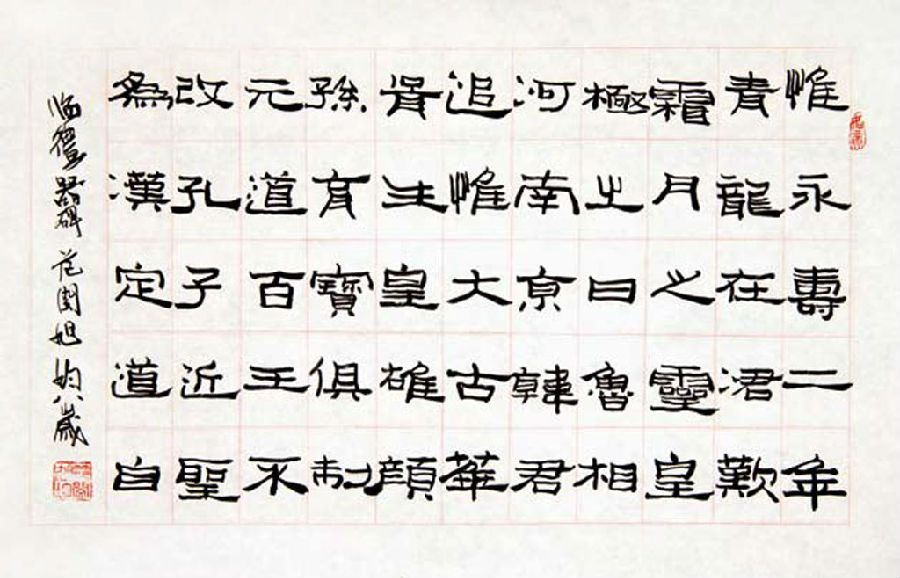 惟永壽二年
青龍在涒歎
霜月之靈皇
極之日魯相
河南京韓君
追惟大古華
胥生皇雄顏
育寶俱制
元道百王不
改孔子近聖
為漢定道自
临禮器碑 八歲